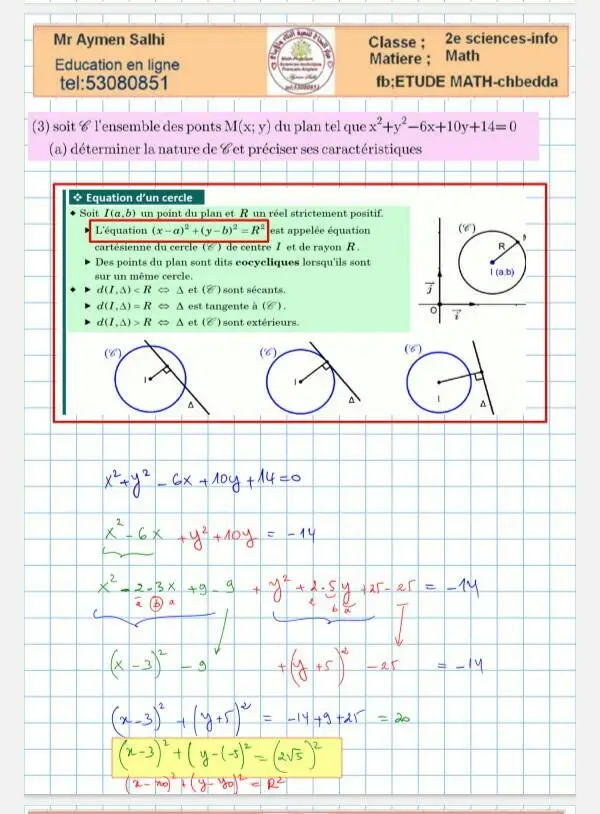 Mr Aymen Salhi
Education en ligne
tel:53080851
Classe ; 2e sciences-info
Matiere ; Math
fb;ETUDE MATH-chbedda
(3) soit 𝒞 l'ensemble des ponts M(x; y) du plan tel que x²+y²−6x+10y+14=0
(a) déterminer la nature de 𝒞 et préciser ses caractéristiques
❖ Equation d'un cercle
◆ Soit I(a,b) un point du plan et R un réel strictement positif.
▶ L'équation (x−a)²+(y−b)²=R² est appelée équation
cartésienne du cercle (𝒞) de centre I et de rayon R.
▶ Des points du plan sont dits cocycliques lorsqu'ils sont
sur un même cercle.
◆ ▶ d(I,Δ)<R ⇔ Δ et (𝒞) sont sécants.
▶ d(I,Δ)=R ⇔ Δ est tangente à (𝒞).
▶ d(I,Δ)>R ⇔ Δ et (𝒞) sont extérieurs.
(𝒞)
R
I (a,b)
j
O i
(𝒞) I Δ
(𝒞) I Δ
(𝒞) I Δ
x²+y²−6x+10y+14=0
x²−6x +y²+10y = −14
x²−2·3x+9−9 + y²+2·5y+25−25 = −14
(x−3)²−9 +(y+5)²−25 = −14
(x−3)²+(y+5)² = −14+9+25 = 20
(x−3)²+(y−(−5)²=(2√5)²
(x−x0)²+(y−y0)²=R²